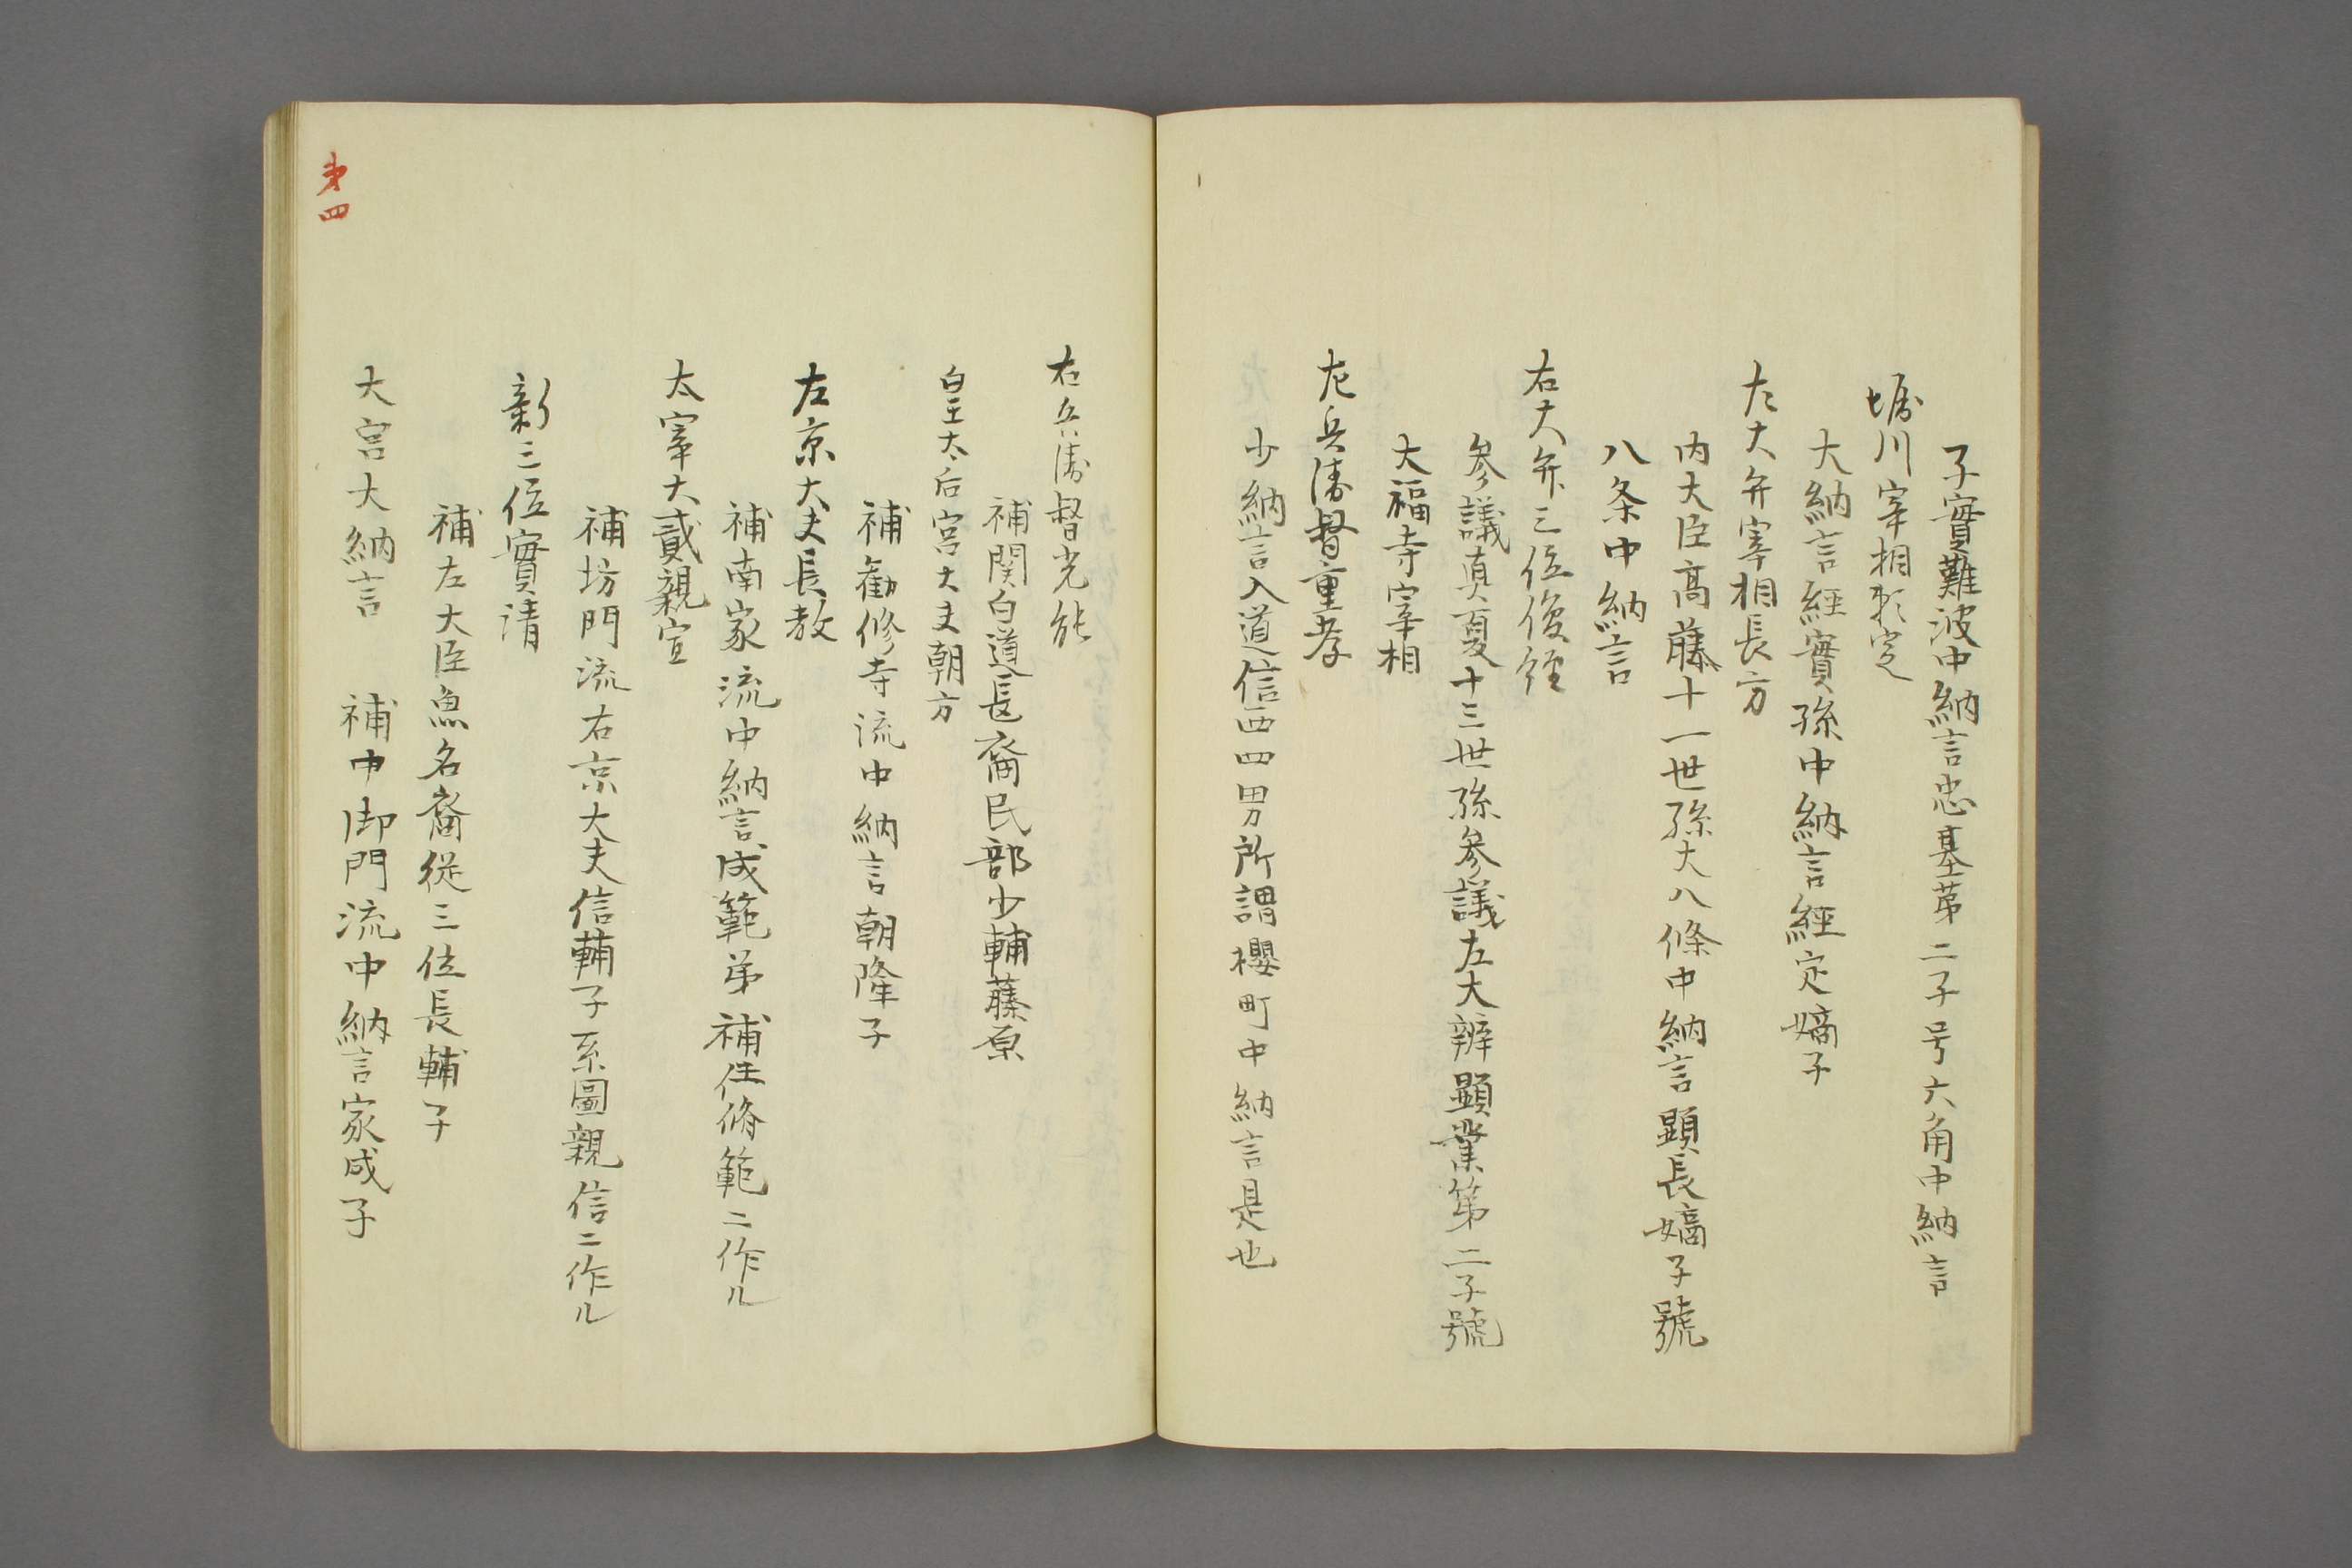 子實難波中納言忠基第二子号六角中納言
堀川宰相頼定
大納言經實孫中納言經定嫡子
左大弁宰相長方
内大臣高藤十一世孫大八條中納言顕長嫡子號
八条中納言
右大弁三位俊經
参議真夏十三世孫参議左大辨顕業第二子號
大福寺宰相
左兵衛督重孝
少納言入道信西四男所謂櫻町中納言是也
右兵衛督光能
補関白道長裔民部少輔藤原
皇太后宮大夫朝方
補勧修寺流中納言朝隆子
左京大夫長教
補南家流中納言成範弟補任脩範ニ作ル
太宰大貳親宣
補坊門流右京大夫信輔子系圖親信ニ作ル
新三位實清
補左大臣魚名裔従三位長輔子
大宮大納言　補中御門流中納言家成子
第四